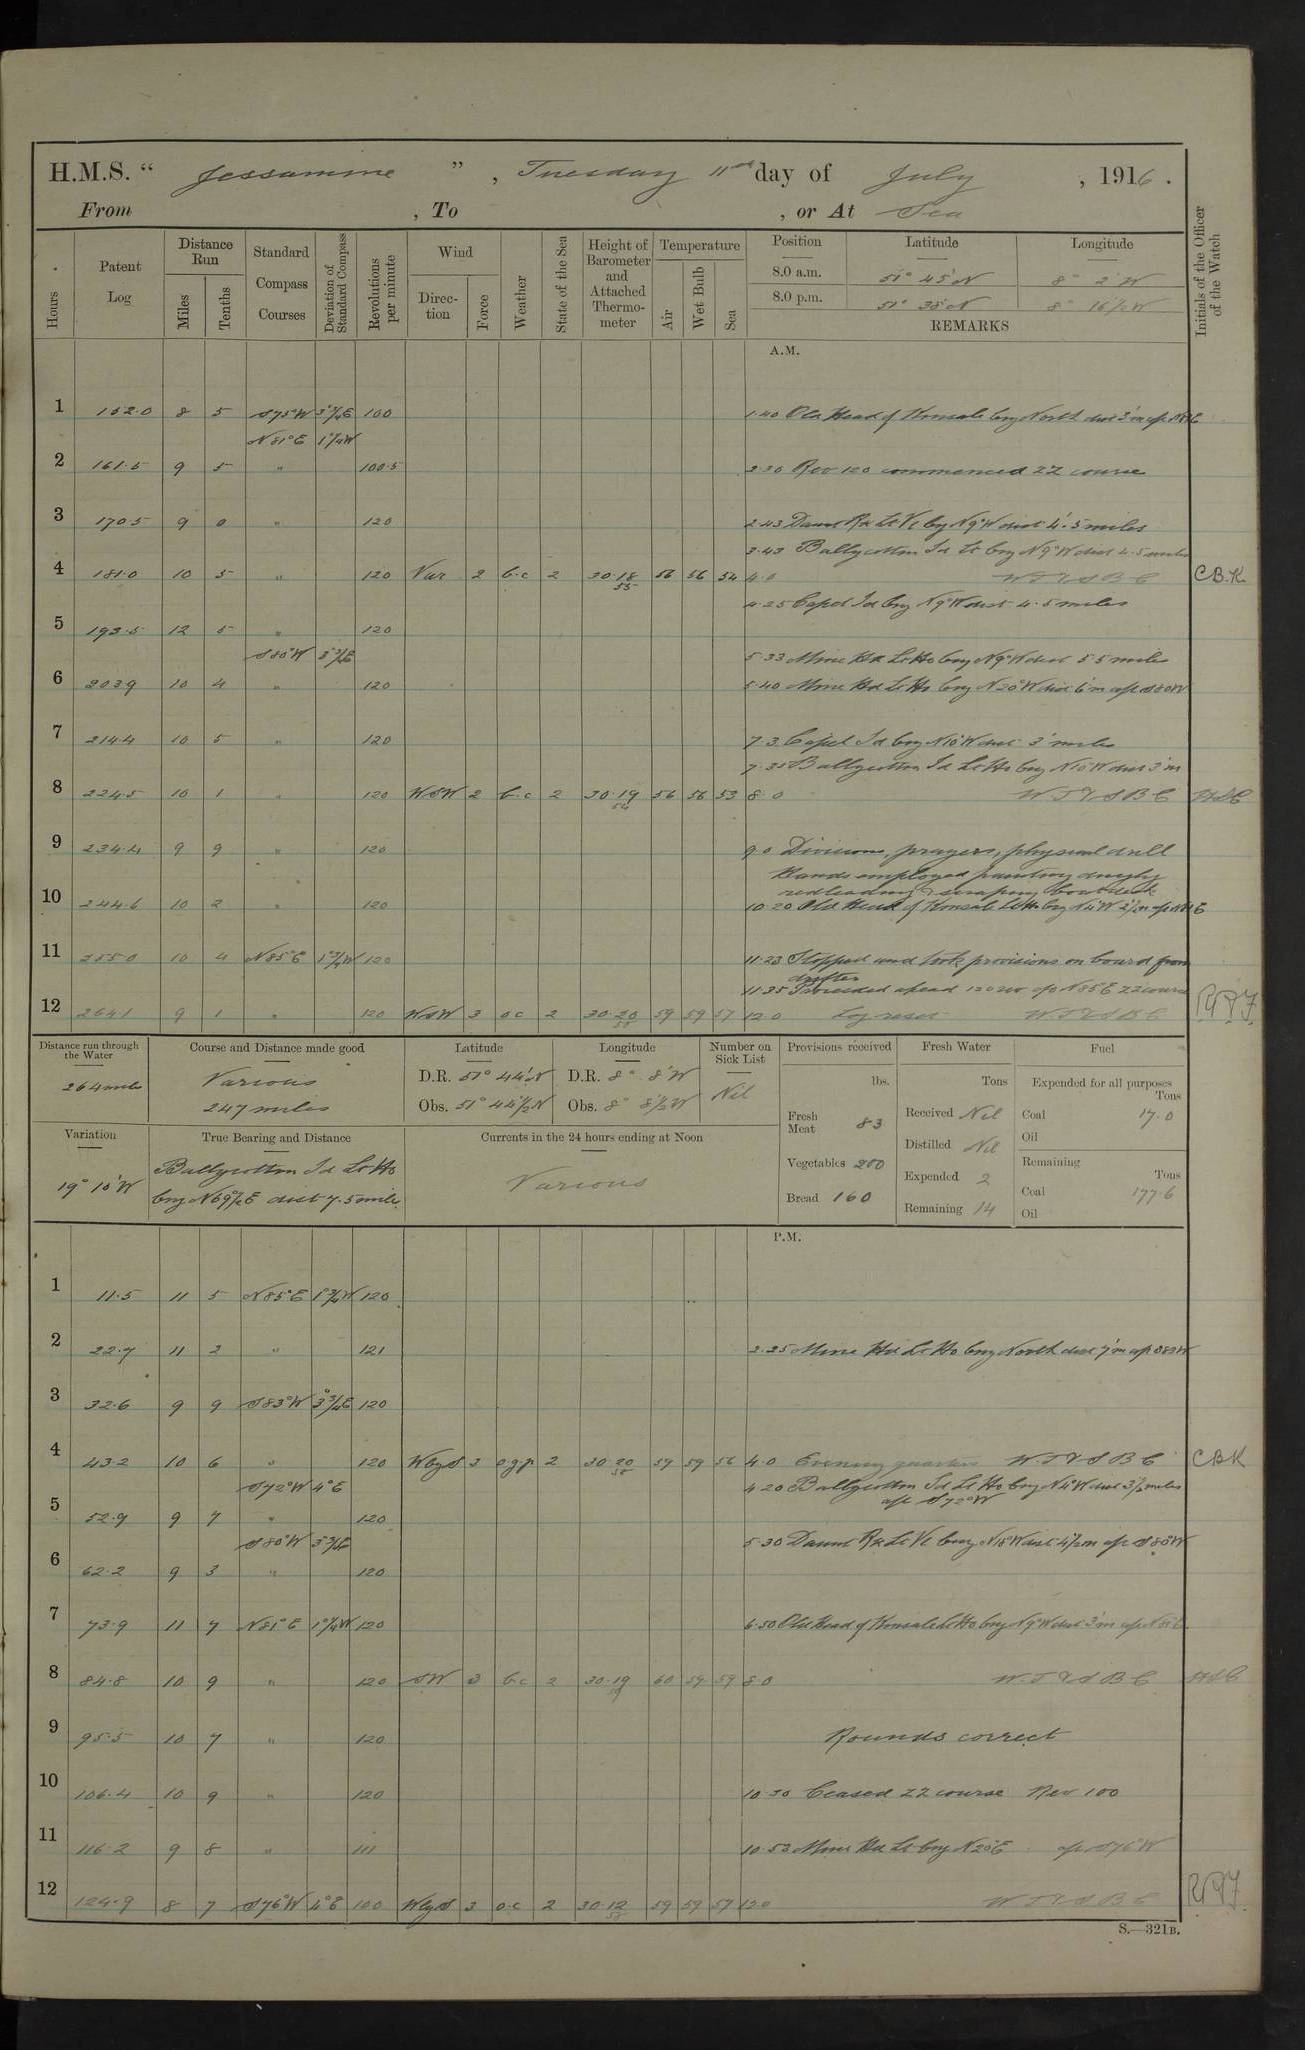 H.M.S. “ Jessamine ” , Tuesday 11th day of July , 1916 .
From , To , or At Sea
Hours
Patent Log
Distance Run
Miles
Tenths
Standard Compass Courses
Deviation of Standard Compass
Revolutions per minute
Wind
Direction
Force
Weather
State of the Sea
Height of Barometer and Attached Thermometer
Temperature
Air
Wet Bulb
Sea
Position Latitude Longitude
8.0 a.m. 51° 45' N 8° 2' W
8.0 p.m. 51° 38' N 8° 16½ W
REMARKS
Initials of the Officer of the Watch
A.M.
1 152.0 8 5 S75°W 3¾E 100 1.40 Old Head of Kinsale brg North dist 3'm a/c N81E
N81°E 1¼W
2 161.5 9 5 " 100.5 2.30 Rev 120 commenced ZZ course
3 170.5 9 0 " 120 2.43 Daunt Rk Lt Vl brg N9°W dist 4'.5 miles
3.43 Ballycotton Id Lt brg N9°W dist 4.5 miles
4 181.0 10 5 " 120 Var 2 b.c 2 30.18 55 56 56 54 4.0 W T & S B C C.B.K.
4.25 Capel Id brg N9°W dist 4.5 miles
5 193.5 12 5 " 120
S80°W 3¾E 5.33 Mine Hd Lt Ho brg N9°W dist 5.5 miles
6 203.9 10 4 " 120 5.40 Mine Hd Lt Ho brg N20°W dist 6'm a/c S80W
7 214.4 10 5 " 120 7.3 Capel Id brg N10°W dist 3' miles
7.35 Ballycotton Id Lt Ho brg N10W dist 3'm
8 224.5 10 1 " 120 WSW 2 b.c 2 30.19 54 56 56 53 8.0 W T & S B C
9 234.4 9 9 " 120 9.0 Divisions, prayers, physical drill
Hands employed painting dinghy
redleading & scraping boat deck
10 244.6 10 2 " 120 10.20 Old Head of Kinsale Lt Ho brg N4°W 2½m a/c N85E
11 255.0 10 4 N85°E 1¾W 120 11.23 Stopped and took provisions on board from
drifter
11.35 Proceeded ahead 120 rev a/c N85°E ZZ course
12 264.1 9 1 " 120 WSW 3 o c 2 30.20 58 59 59 57 12.0 Log reset W T & S B C
Distance run through the Water
264 miles
Course and Distance made good
Various
247 miles
Latitude
D.R. 51° 44' N
Obs. 51° 44½ N
Longitude
D.R. 8° 8' W
Obs. 8° 8½ W
Number on Sick List
Nil
Variation
19° 10' W
True Bearing and Distance
Ballycotton Id Lt Ho
brg N69½E dist 7.5 mile
Currents in the 24 hours ending at Noon
Various
Provisions received
lbs.
Fresh Meat 83
Vegetables 200
Bread 160
Fresh Water
Tons
Received Nil
Distilled Nil
Expended 2
Remaining 14
Fuel
Expended for all purposes
Tons
Coal 17.0
Oil
Remaining
Tons
Coal 177.6
Oil
P.M.
1 11.5 11 5 N85°E 1¾W 120
2 22.7 11 2 " 121 2.25 Mine Hd Lt Ho brg North dist 7'm a/c S83W
3 32.6 9 9 S83°W 3¾E 120
4 43.2 10 6 " 120 WbyS 3 o.g.p 2 30.20 58 59 59 56 4.0 Evening quarters W T & S B C C B K
S72°W 4°E 4.20 Ballycotton Id Lt Ho brg N4°W dist 3½ miles
a/c S72°W
5 52.9 9 7 " 120
S80°W 3¾E 5.30 Daunt Rk Lt Vl brg N18°W dist 4½m a/c S80W
6 62.2 9 3 " 120
7 73.9 11 7 N81°E 1¼W 120 6.50 Old Head of Kinsale Lt Ho brg N9°W dist 3'm a/c N81E
8 84.8 10 9 " 120 SW 3 b.c 2 30.19 60 59 59 8.0 W T & S B C
9 95.5 10 7 " 120 Rounds correct
10 106.4 10 9 " 120 10.30 Ceased ZZ course Rev 100
11 116.2 9 8 " 111 10.53 Mine Hd Lt brg N20°E a/c S76°W
12 124.9 8 7 S76°W 4°E 100 WbyS 3 o.c 2 30.12 58 59 59 57 12.0 W T & S B C
S.—321B.